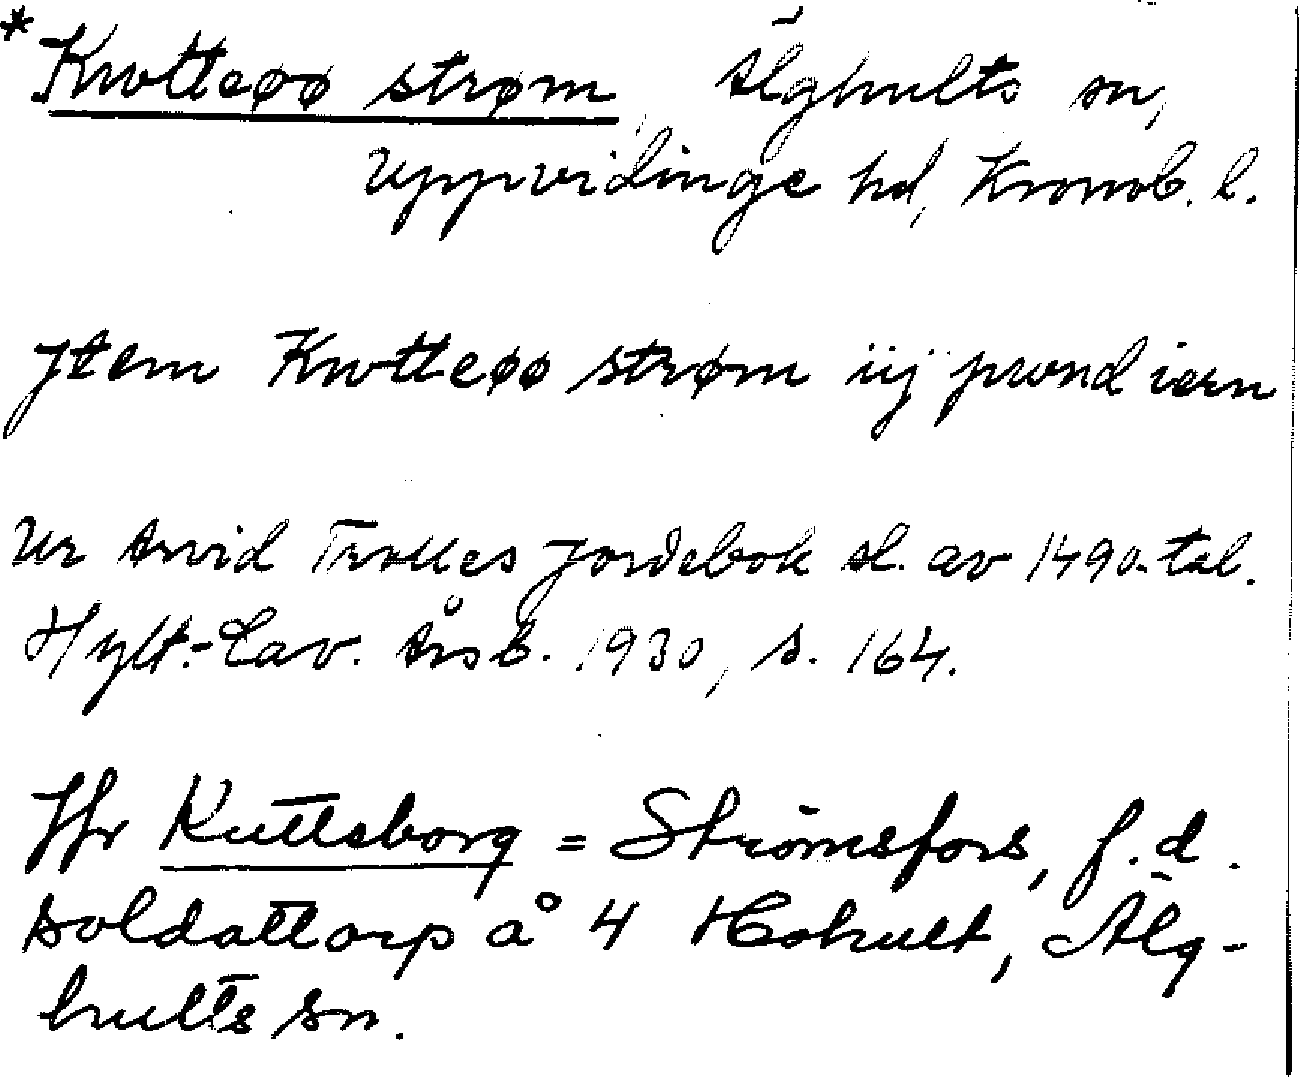 *Knotteøø strøm, Älghults sn,
Uppvidinge hd, Kronob. l.
Jtem Knotteøø strøm iij pwnd iern
Ur Arvid Trolles jordebok sl. av 1490-tal.
Hylt.-Cav. Årsb. 1930, s. 164.
Jfr Kuttsborg = Strömsfors, f.d.
soldattorp å 4 Hohult, Älg-
hults sn.